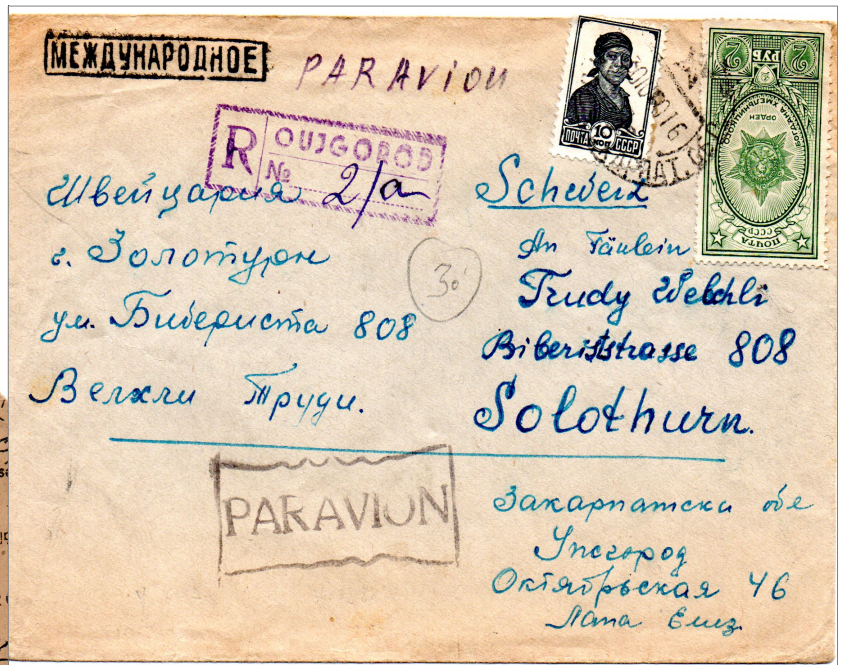 МЕЖДУНАРОДНОЕ
PARAVION
R OUJGOROD
№ 2/a
ПОЧТА 10 КОП. СССР
2 РУБ 2
ОРДЕН
БОГДАНА ХМЕЛЬНИЦКОГО
ПОЧТА
СССР
Швейцария
г. Золотурн
ул. Бибериста 808
Велхли Труди.
30
Scheveiz
An Fäulein
Trudy Welchli
Biberiststrasse 808
Solothurn.
PARAVION
Закарпатска обе
Ужгород
Октябрьская 46
Лапа Елиз.